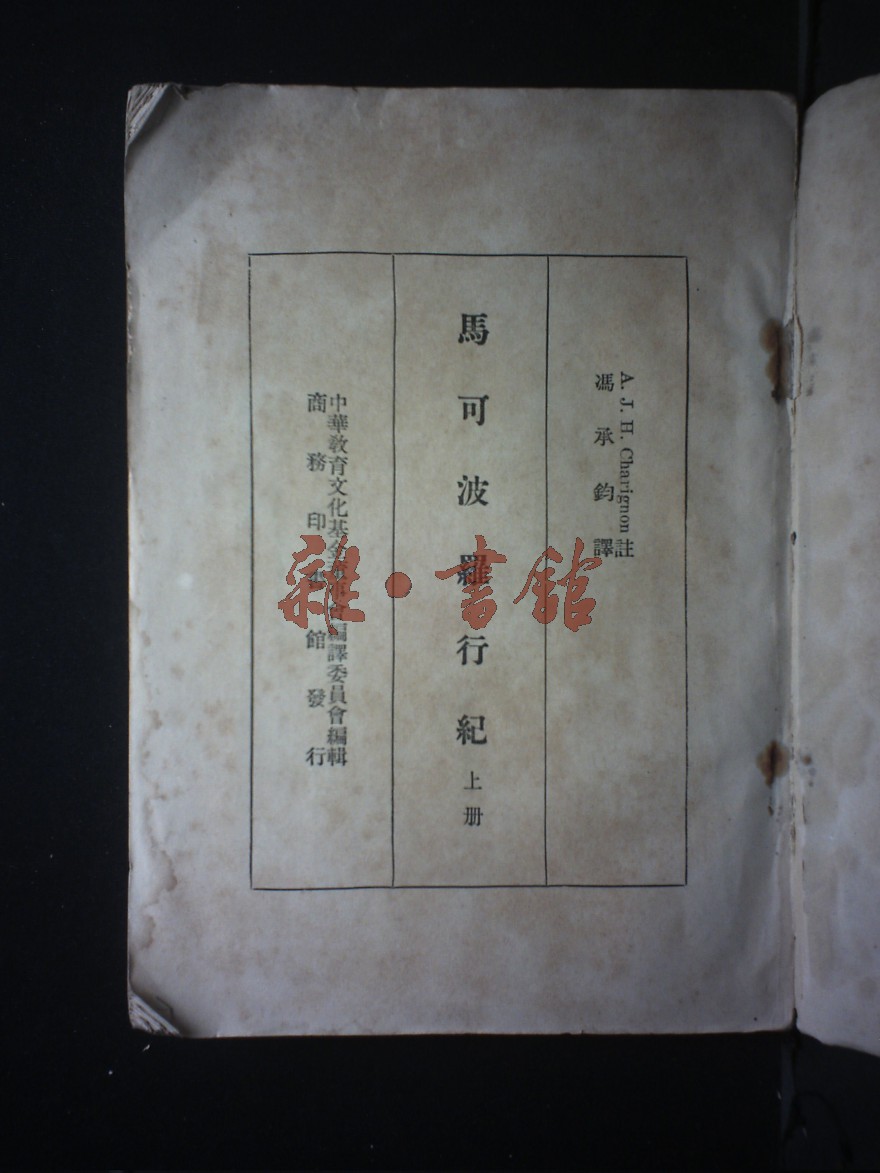 A. J. H. Charignon 註
馮承鈞譯
馬可波羅行紀 上册
中華教育文化基金董事會編譯委員會編輯
商務印書館發行
雜·書館